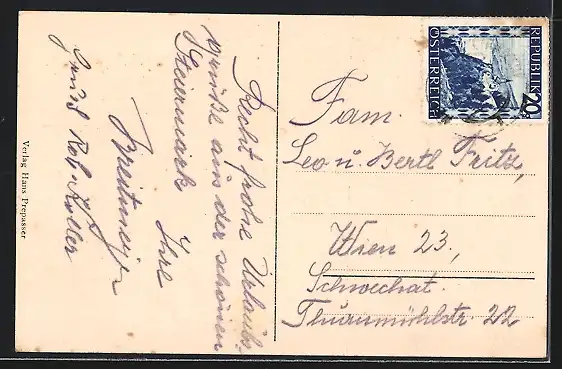 Recht frohe Urlaubs-
grüße aus der schönen
Steiermark Ihre
Breitmeyer
Verlag Hans Prepasser
REPUBLIK
ÖSTERREICH
20g
Fam.
Leo u. Bertl Fritz,
Wien 23.,
Schwechat.
Thurnmühlstr. 22